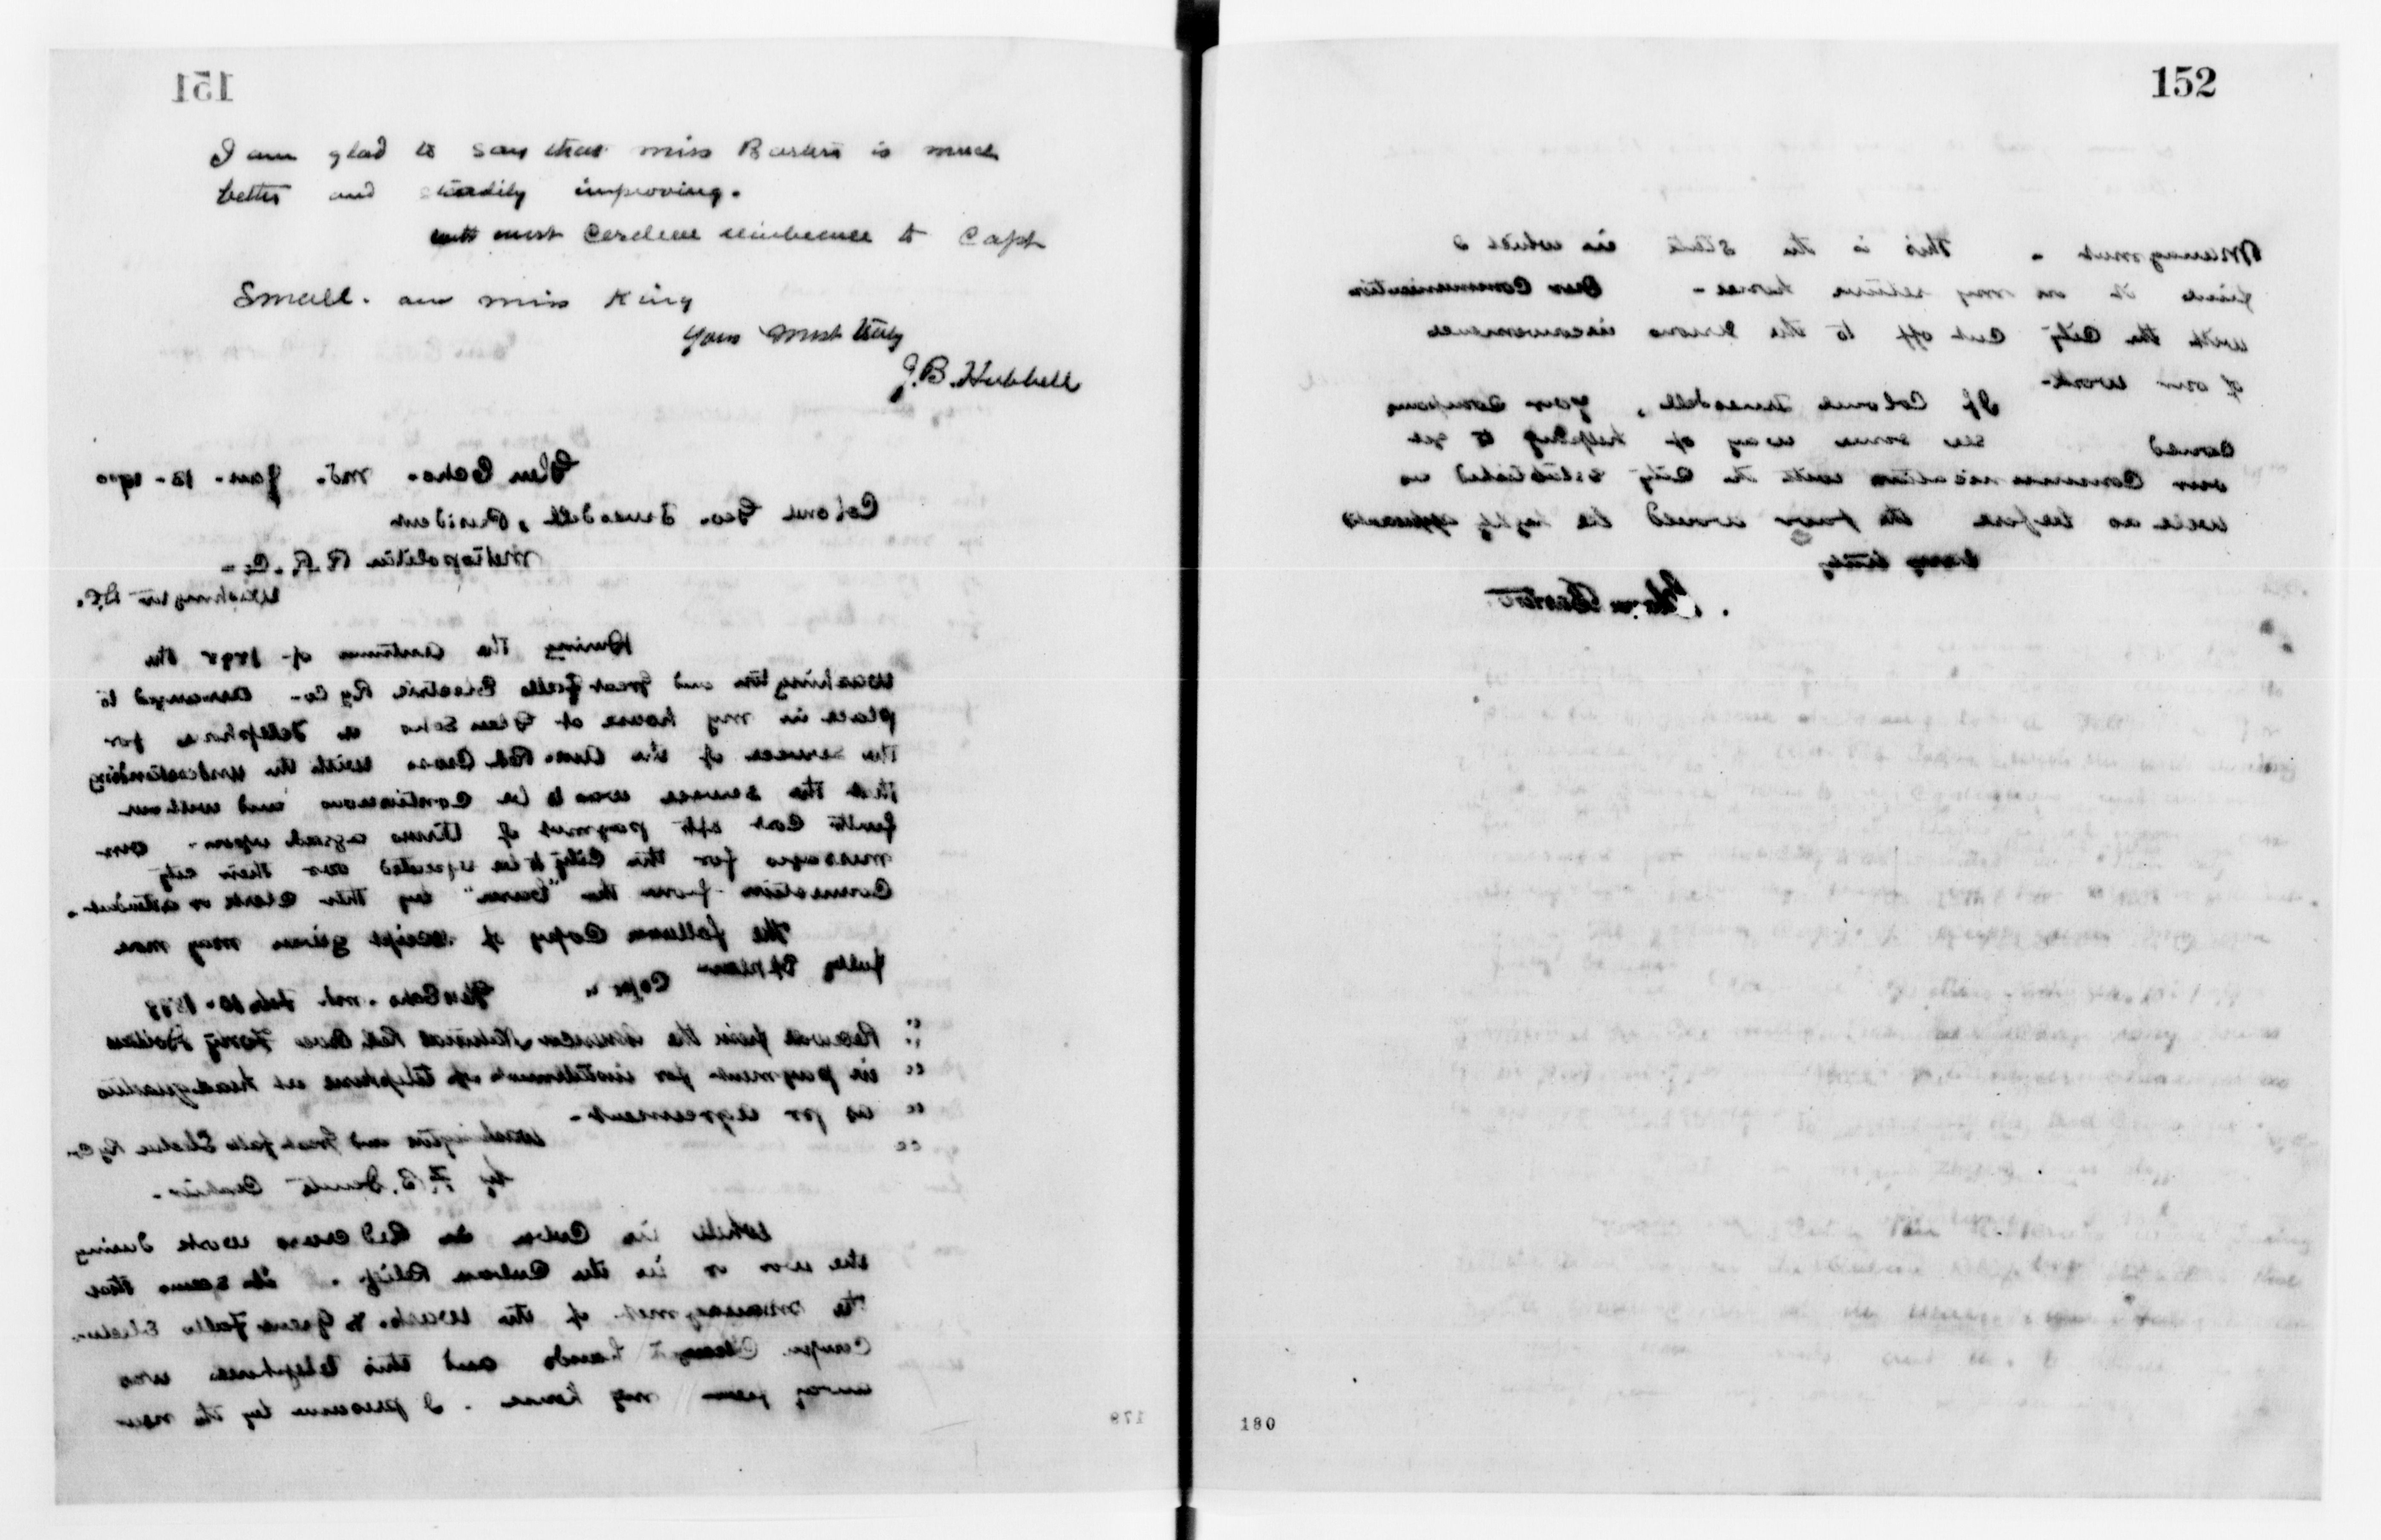 151
I am glad to say that miss Barton is much
better and steadily improving.
with most Cordial remembrance to Capt
Small. and miss King
yours most truly
J.B. Hubbell
Glen Echo. Md. Jan. 13 - 1900
Colonel Geo. Truesdell, President
Metropolitan R.R. Co -
Washington D.C.
During the autumn of 1898 the
Washington and Great Falls Electric Ry Co - arranged to
place in my house at Glen Echo a Telephone for
the services of the Am. Red Cross with the understanding
that the service was to be continuous and without
further Cost after payment of terms agreed upon - our
messages for the City to be repeated over their city
Connection from the "barn" by their Clerk or attendant.
The following Copy of receipt given may more
fully explain Copy "
Glen Echo. Md. Feb. 10 - 1898
" Received from the American National Red Cross Forty Dollars
" in payment for installment of telephone at headquarters
" as per agreement -
" Washington and Great Falls Electric Ry Co.
by F. B. Cashier -
While in Cuba in Red Cross work during
the war or in the Cuban Relief. it seems that
the management of the Wash. & Great Falls Electric
Compn. Changed hands and this telephone was
away from my house. I presume by the new
178
152
Management - This is the state in which I
find it on my return home - Our Communication
with the City cut off to the serious inconvenience
of our work -
If Colonel Truesdell, your Company
could see some way of helping to get
our Communication with the City established as
well as before the favor would be highly appreciated
very truly
Clara Barton
180